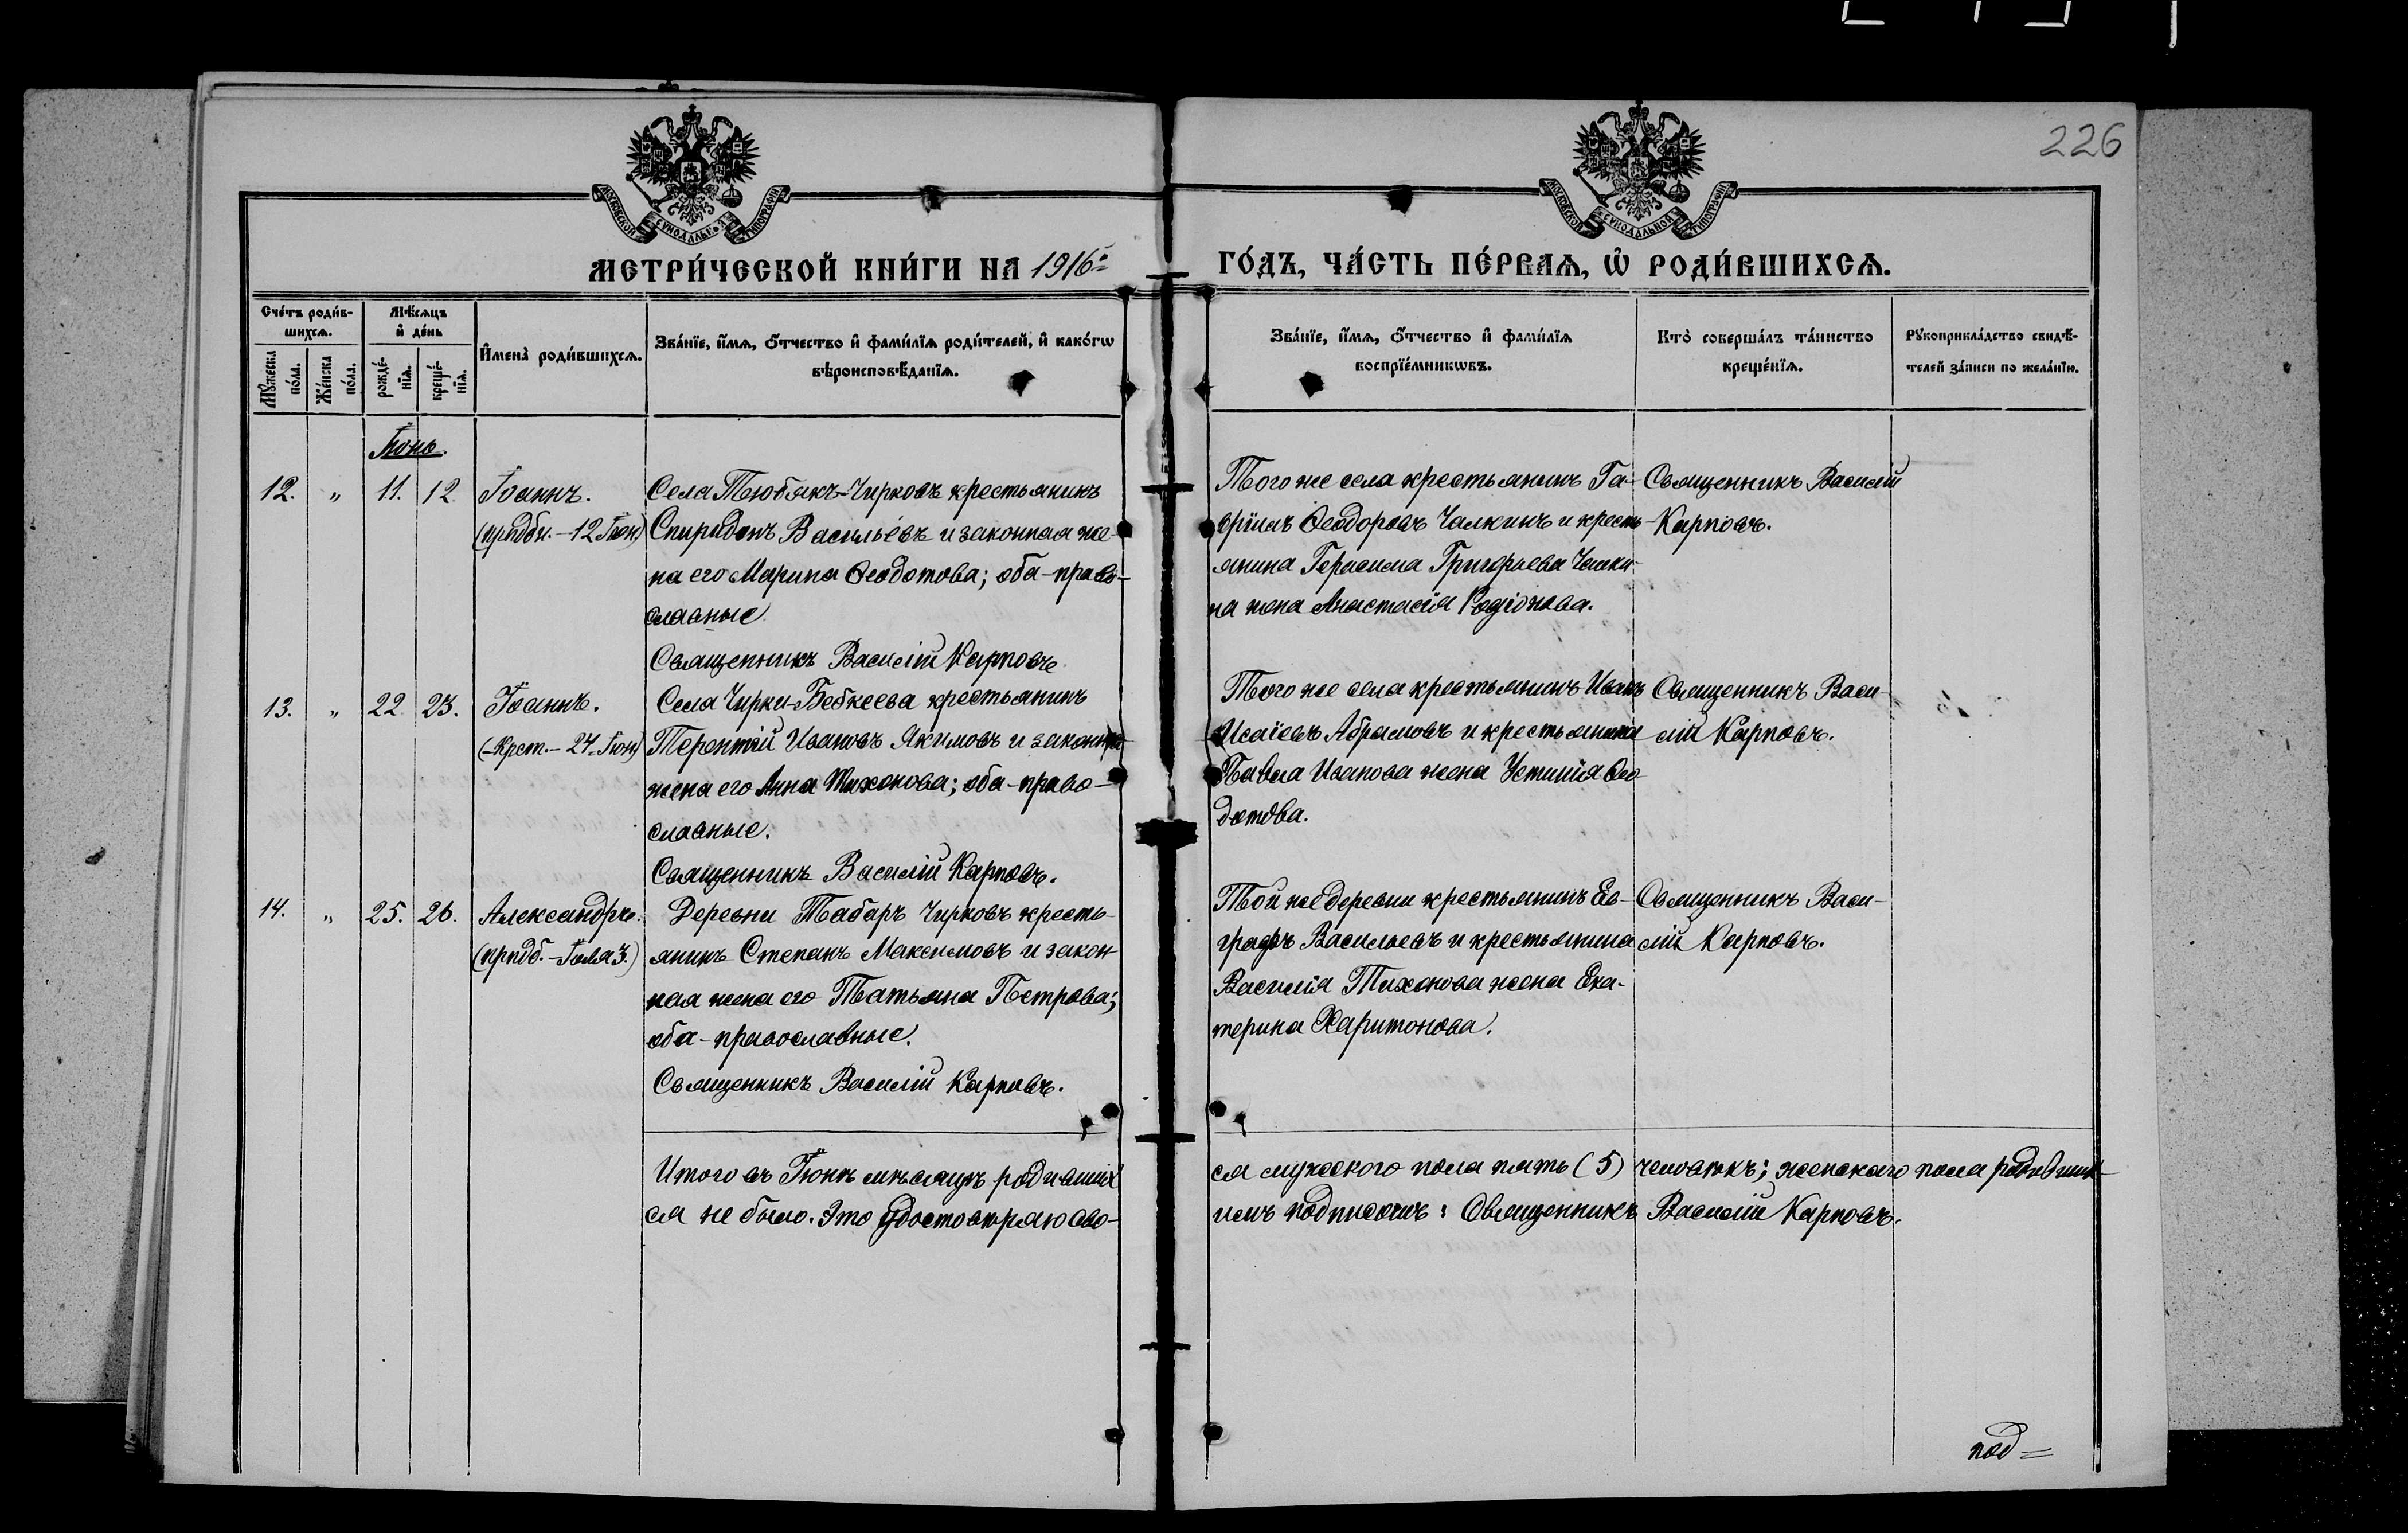 226
МОСКОВСКОЙ СѴНОДАЛЬНОЙ ТИПОГРАФІИ
МОСКОВСКОЙ СѴНОДАЛЬНОЙ ТИПОГРАФІИ
МЕТРИ́ЧЕСКОЙ КНИ́ГИ НА 1916й
ГО́ДЪ, ЧА́СТЬ ПЕ́РВАѦ, Ѡ҆ РОДИ́ВШИХСѦ.
Сче́тъ роди́в-
шихсѧ.
Мꙋ́жеска по́ла.
Же́нска по́ла.
Мѣ́сѧцъ
и҆ де́нь
рожде́-
нїѧ.
креще́-
нїѧ.
И҆мена̀ роди́вшихсѧ.
Зва́нїе, и҆́мѧ, ѻ҆́тчество и҆ фами́лїѧ роди́телей, и҆ како́гѡ
вѣроисповѣ́данїѧ.
Зва́нїе, и҆́мѧ, ѻ҆́тчество и҆ фами́лїѧ
воспрїе́мникѡвъ.
Кто̀ соверша́лъ та́инство
креще́нїѧ.
Рꙋкоприкла́дство свидѣ́-
телей за́писи по жела́нїю.
Іюнь.
12. „ 11. 12.
Іоаннъ.
(прпдбн. - 12 Іюн)
Села Тюбякъ-Чирковъ крестьянинъ
Спиридонъ Васильевъ и законная же-
на его Марина Ѳеодотова; оба - право-
славные
Священникъ Василій Карповъ
Того же села крестьянинъ Га-
вріилъ Ѳеодоровъ Чалкинъ и кресть-
янина Герасима Григорьева Чалки-
на жена Анастасія Родіонова.
Священникъ Василій
Карповъ.
13. „ 22. 23.
Іоаннъ.
(Крст. - 24 Іюн)
Села Чирки-Бебкеева крестьянинъ
Терентій Ивановъ Якимовъ и законная
жена его Анна Тихонова; оба - право-
славные.
Священникъ Василій Карповъ.
Того же села крестьянинъ Иванъ
Исаіевъ Абрамовъ и крестьянина
Павла Иванова жена Устинія Ѳео-
дотова.
Священникъ Васи-
лій Карповъ.
14. „ 25. 26.
Александръ.
(прпдб. - Іюля 3.)
Деревни Табаръ Чирковъ кресть-
янинъ Степанъ Максимовъ и закон
ная жена его Татьяна Петрова;
оба - православные.
Священникъ Василій Карповъ.
Той же деревни крестьянинъ Ев-
графъ Васильевъ и крестьянина
Василія Тихонова жена Ека-
терина Харитонова.
Священникъ Васи-
лій Карповъ.
Итого въ Іюнѣ мѣсяцѣ родивших
ся мужского пола пять (5) человѣкъ; женскаго пола родивших-
ся не было. Это удостовѣряю сво-
имъ подписомъ: Священникъ Василій Карповъ.
под=